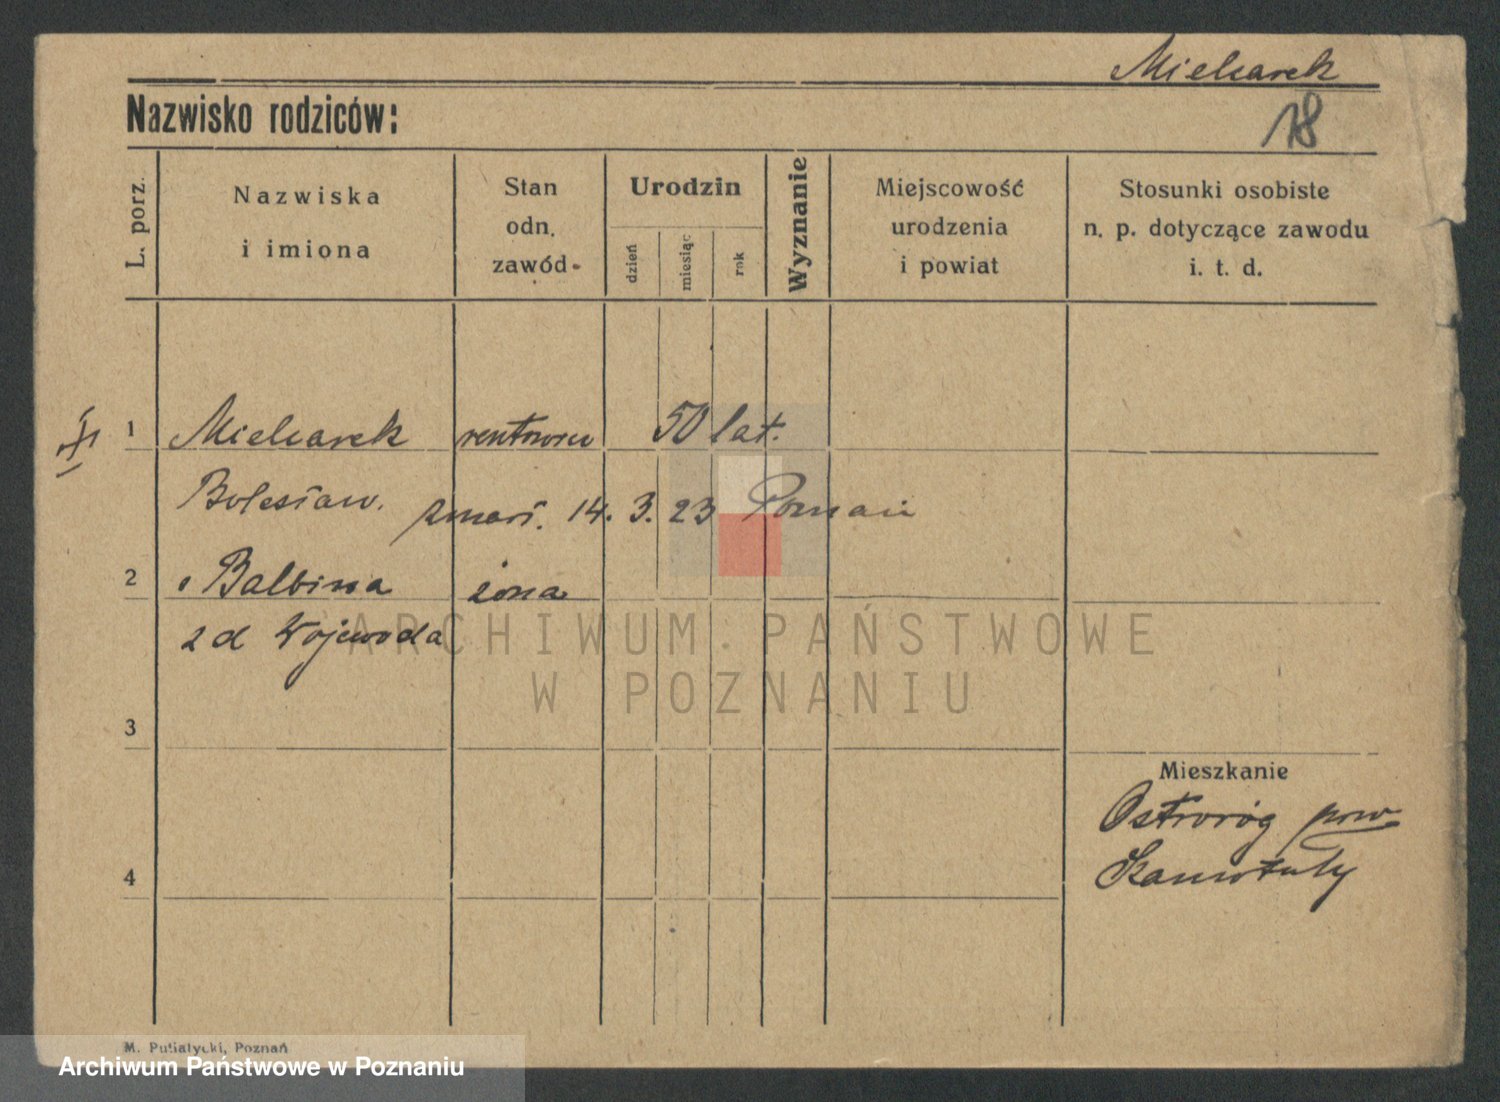 Mielcarek
Nazwisko rodziców:
18
L. porz.
Nazwiska
i imiona
Stan
odn.
zawód
Urodzin
dzień
miesiąc
rok
Wyznanie
Miejscowość
urodzenia
i powiat
Stosunki osobiste
n. p. dotyczące zawodu
i. t. d.
1 Mielcarek 50 lat.
Bolesław. zmarł. 14. 3. 23 Poznań
2 Balbina żona
z d Wojewoda
ARCHIWUM PAŃSTWOWE
W POZNANIU
3
Mieszkanie
Ostroróg pow
Szamotuły
4
M. Putiatycki, Poznań
Archiwum Państwowe w Poznaniu